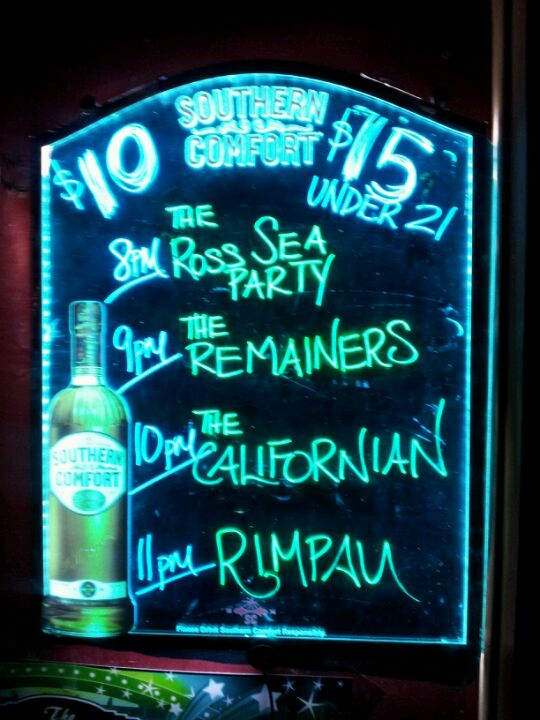 SOUTHERN
COMFORT
$10
$15
UNDER 21
8PM THE
ROSS SEA
PARTY
9PM THE
REMAINERS
10PM THE
CALIFORNIAN
11PM RIMPAU
SOUTHERN
COMFORT
SC
Please Drink Southern Comfort Responsibly.
The